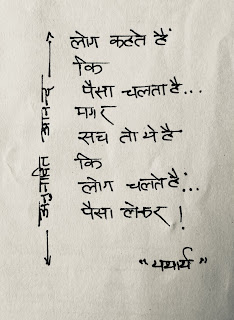 लोग कहते हैं
कि
पैसा चलता है...
मगर
सच तो ये है
कि
लोग चलते हैं...
पैसा लेकर !
"यथार्थ"
आनन्द